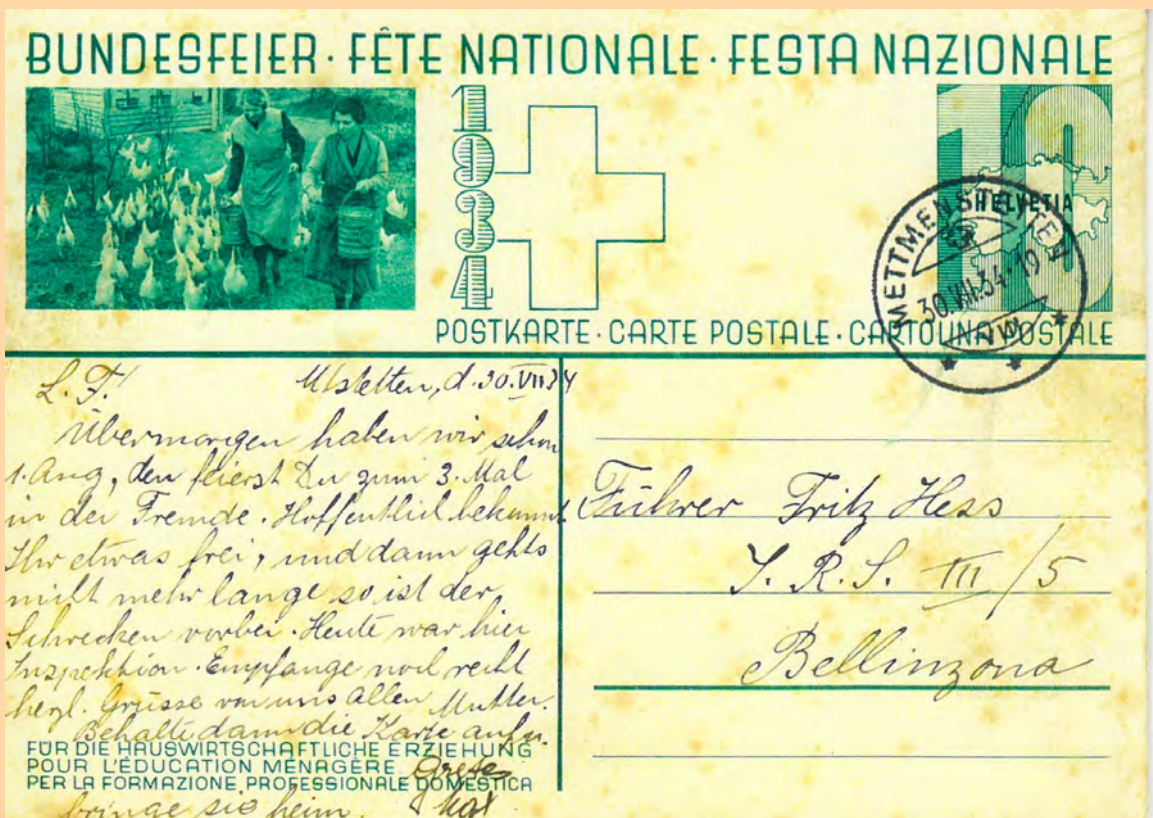 BUNDESFEIER · FÊTE NATIONALE · FESTA NAZIONALE
1934
10
HELVETIA
METTMENSTETTEN
30.VII.34·19
POSTKARTE · CARTE POSTALE · CARTOLINA POSTALE
L. F.! Mstetten, d. 30.VII 34
Übermorgen haben wir schon
1. Aug, den feierst Du zum 3. Mal
in der Fremde. Hoffentlich bekommt
Ihr etwas frei, und dann gehts
nicht mehr lange so ist der
Schrecken vorbei. Heute war hier
Inspektion. Empfange noch recht
herzl. Grüsse von uns Allen Mutter.
Behalte dann die Karte auf u.
FÜR DIE HAUSWIRTSCHAFTLICHE ERZIEHUNG
POUR L'ÉDUCATION MENAGÈRE
PER LA FORMAZIONE PROFESSIONALE DOMESTICA
bringe sie heim.
Führer Fritz Hess
I. R. S. III/5
Bellinzona